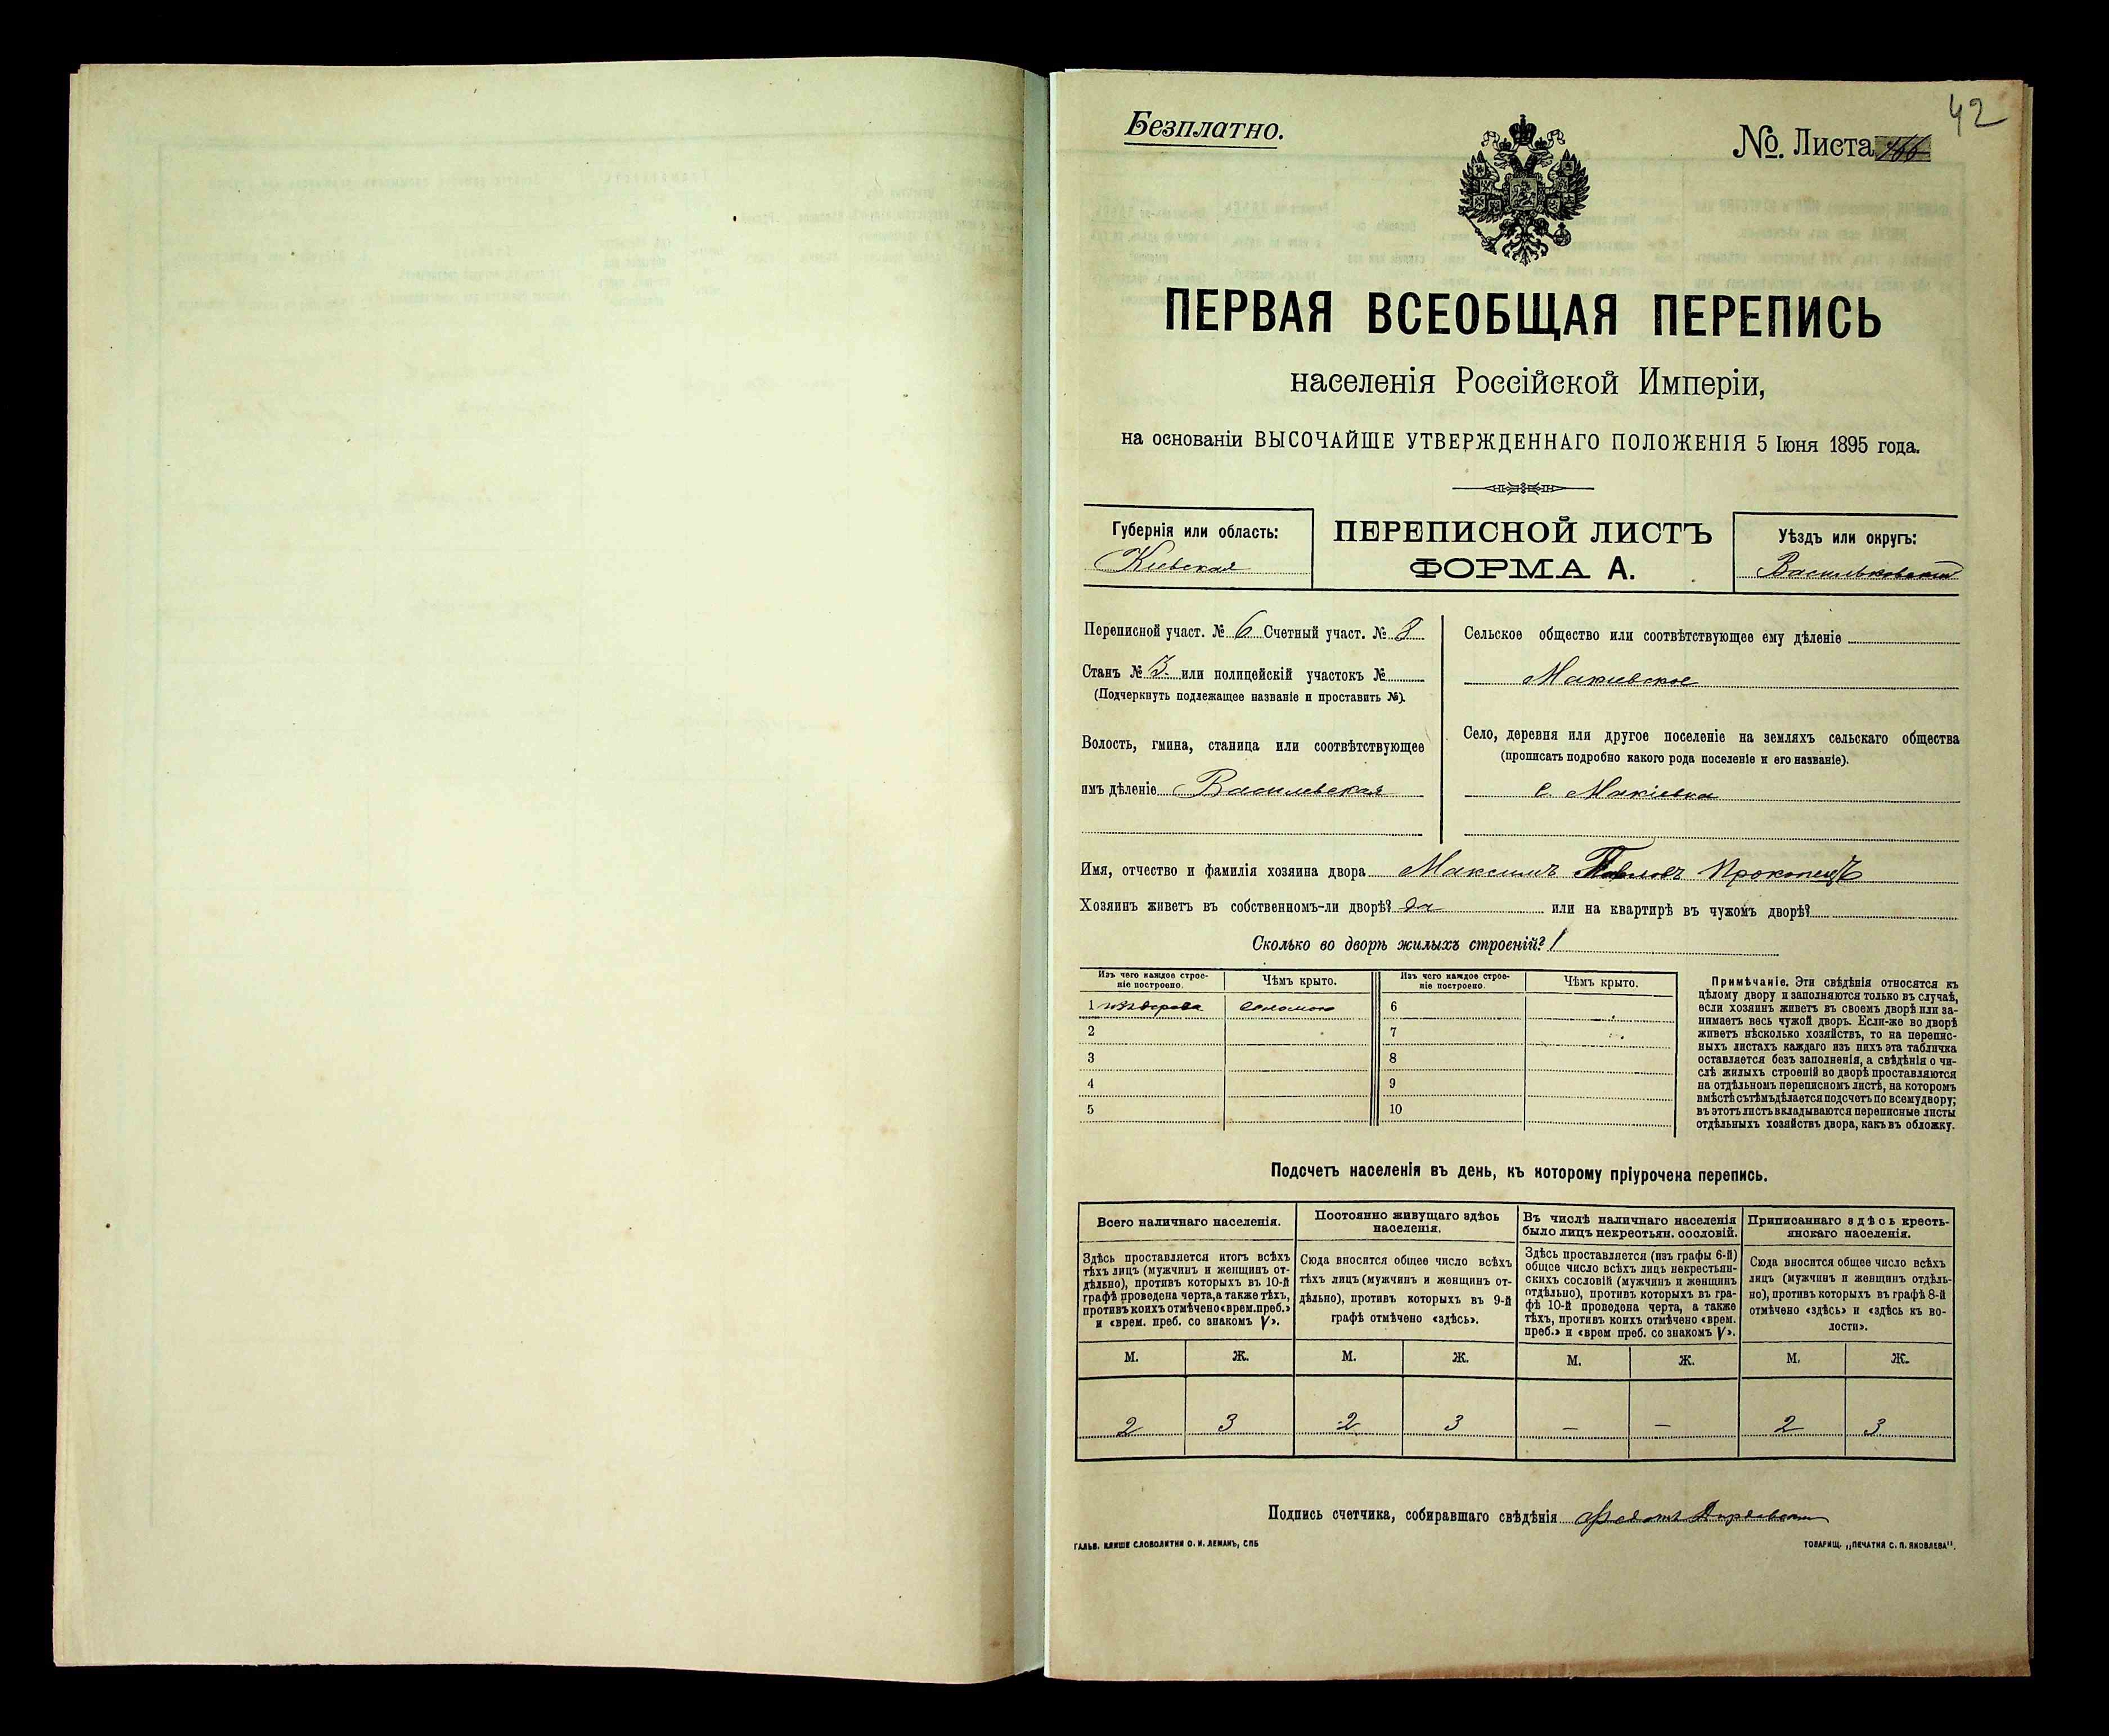 42
Безплатно.
№. Листа
ПЕРВАЯ ВСЕОБЩАЯ ПЕРЕПИСЬ
населенія Россійской Имперіи,
на основаніи ВЫСОЧАЙШЕ УТВЕРЖДЕННАГО ПОЛОЖЕНІЯ 5 Іюня 1895 года.
Губернія или область:
Кіевская
ПЕРЕПИСНОЙ ЛИСТЪ
ФОРМА А.
Уѣздъ или округъ:
Васильковскій
Переписной участ. № 6 Счетный участ. № 8
Станъ № 3. или полицейскій участокъ №
(Подчеркнуть подлежащее названіе и проставить №).
Волость, гмина, станица или соотвѣтствующее
имъ дѣленіе Василевская
Сельское общество или соотвѣтствующее ему дѣленіе
Макиевское
Село, деревня или другое поселеніе на земляхъ сельскаго общества
(прописать подробно какого рода поселеніе и его названіе).
с. Макіевка
Имя, отчество и фамилія хозяина двора Максимъ Павловъ Прокопецъ
Хозяинъ живетъ въ собственномъ-ли дворѣ? да или на квартирѣ въ чужомъ дворѣ?
Сколько во дворѣ жилыхъ строеній? 1
Изъ чего каждое строе-
ніе построено.
Чѣмъ крыто.
Изъ чего каждое строе-
ніе построено.
Чѣмъ крыто.
1 изъ дерева соломою 6
2 7
3 8
4 9
5 10
Примѣчаніе. Эти свѣдѣнія относятся къ
цѣлому двору и заполняются только въ случаѣ,
если хозяинъ живетъ въ своемъ дворѣ или за-
нимаетъ весь чужой дворъ. Если-же во дворѣ
живетъ нѣсколько хозяйствъ, то на перепис-
ныхъ листахъ каждаго изъ нихъ эта табличка
оставляется безъ заполненія, а свѣдѣнія о чи-
слѣ жилыхъ строеній во дворѣ проставляются
на отдѣльномъ переписномъ листѣ, на которомъ
вмѣстѣ съ тѣмъ дѣлается подсчетъ по всему двору;
въ этотъ листъ вкладываются переписные листы
отдѣльныхъ хозяйствъ двора, какъ въ обложку.
Подсчетъ населенія въ день, къ которому пріурочена перепись.
Всего наличнаго населенія.
Здѣсь проставляется итогъ всѣхъ
тѣхъ лицъ (мужчинъ и женщинъ от-
дѣльно), противъ которыхъ въ 10-й
графѣ проведена черта, а также тѣхъ,
противъ коихъ отмѣчено «врем. преб.»
и «врем. преб. со знакомъ V».
Постоянно живущаго здѣсь
населенія.
Сюда вносится общее число всѣхъ
тѣхъ лицъ (мужчинъ и женщинъ от-
дѣльно), противъ которыхъ въ 9-й
графѣ отмѣчено «здѣсь».
Въ числѣ наличнаго населенія
было лицъ некрестьян. сословій.
Здѣсь проставляется (изъ графы 6-й)
общее число всѣхъ лицъ некрестьян-
скихъ сословій (мужчинъ и женщинъ
отдѣльно), противъ которыхъ въ гра-
фѣ 10-й проведена черта, а также
тѣхъ, противъ коихъ отмѣчено «врем.
преб.» и «врем преб. со знакомъ V».
Приписаннаго здѣсь кресть-
янскаго населенія.
Сюда вносится общее число всѣхъ
лицъ (мужчинъ и женщинъ отдѣль-
но), противъ которыхъ въ графѣ 8-й
отмѣчено «здѣсь» и «здѣсь къ во-
лости».
М. Ж. М. Ж. М. Ж. М. Ж.
2 3 2 3 — — 2 3
Подпись счетчика, собиравшаго свѣдѣнія
ГАЛЬВ. КЛИШЕ СЛОВОЛИТНИ О. И. ЛЕМАНЪ, СПБ
ТОВАРИЩ. „ПЕЧАТНЯ С. П. ЯКОВЛЕВА".